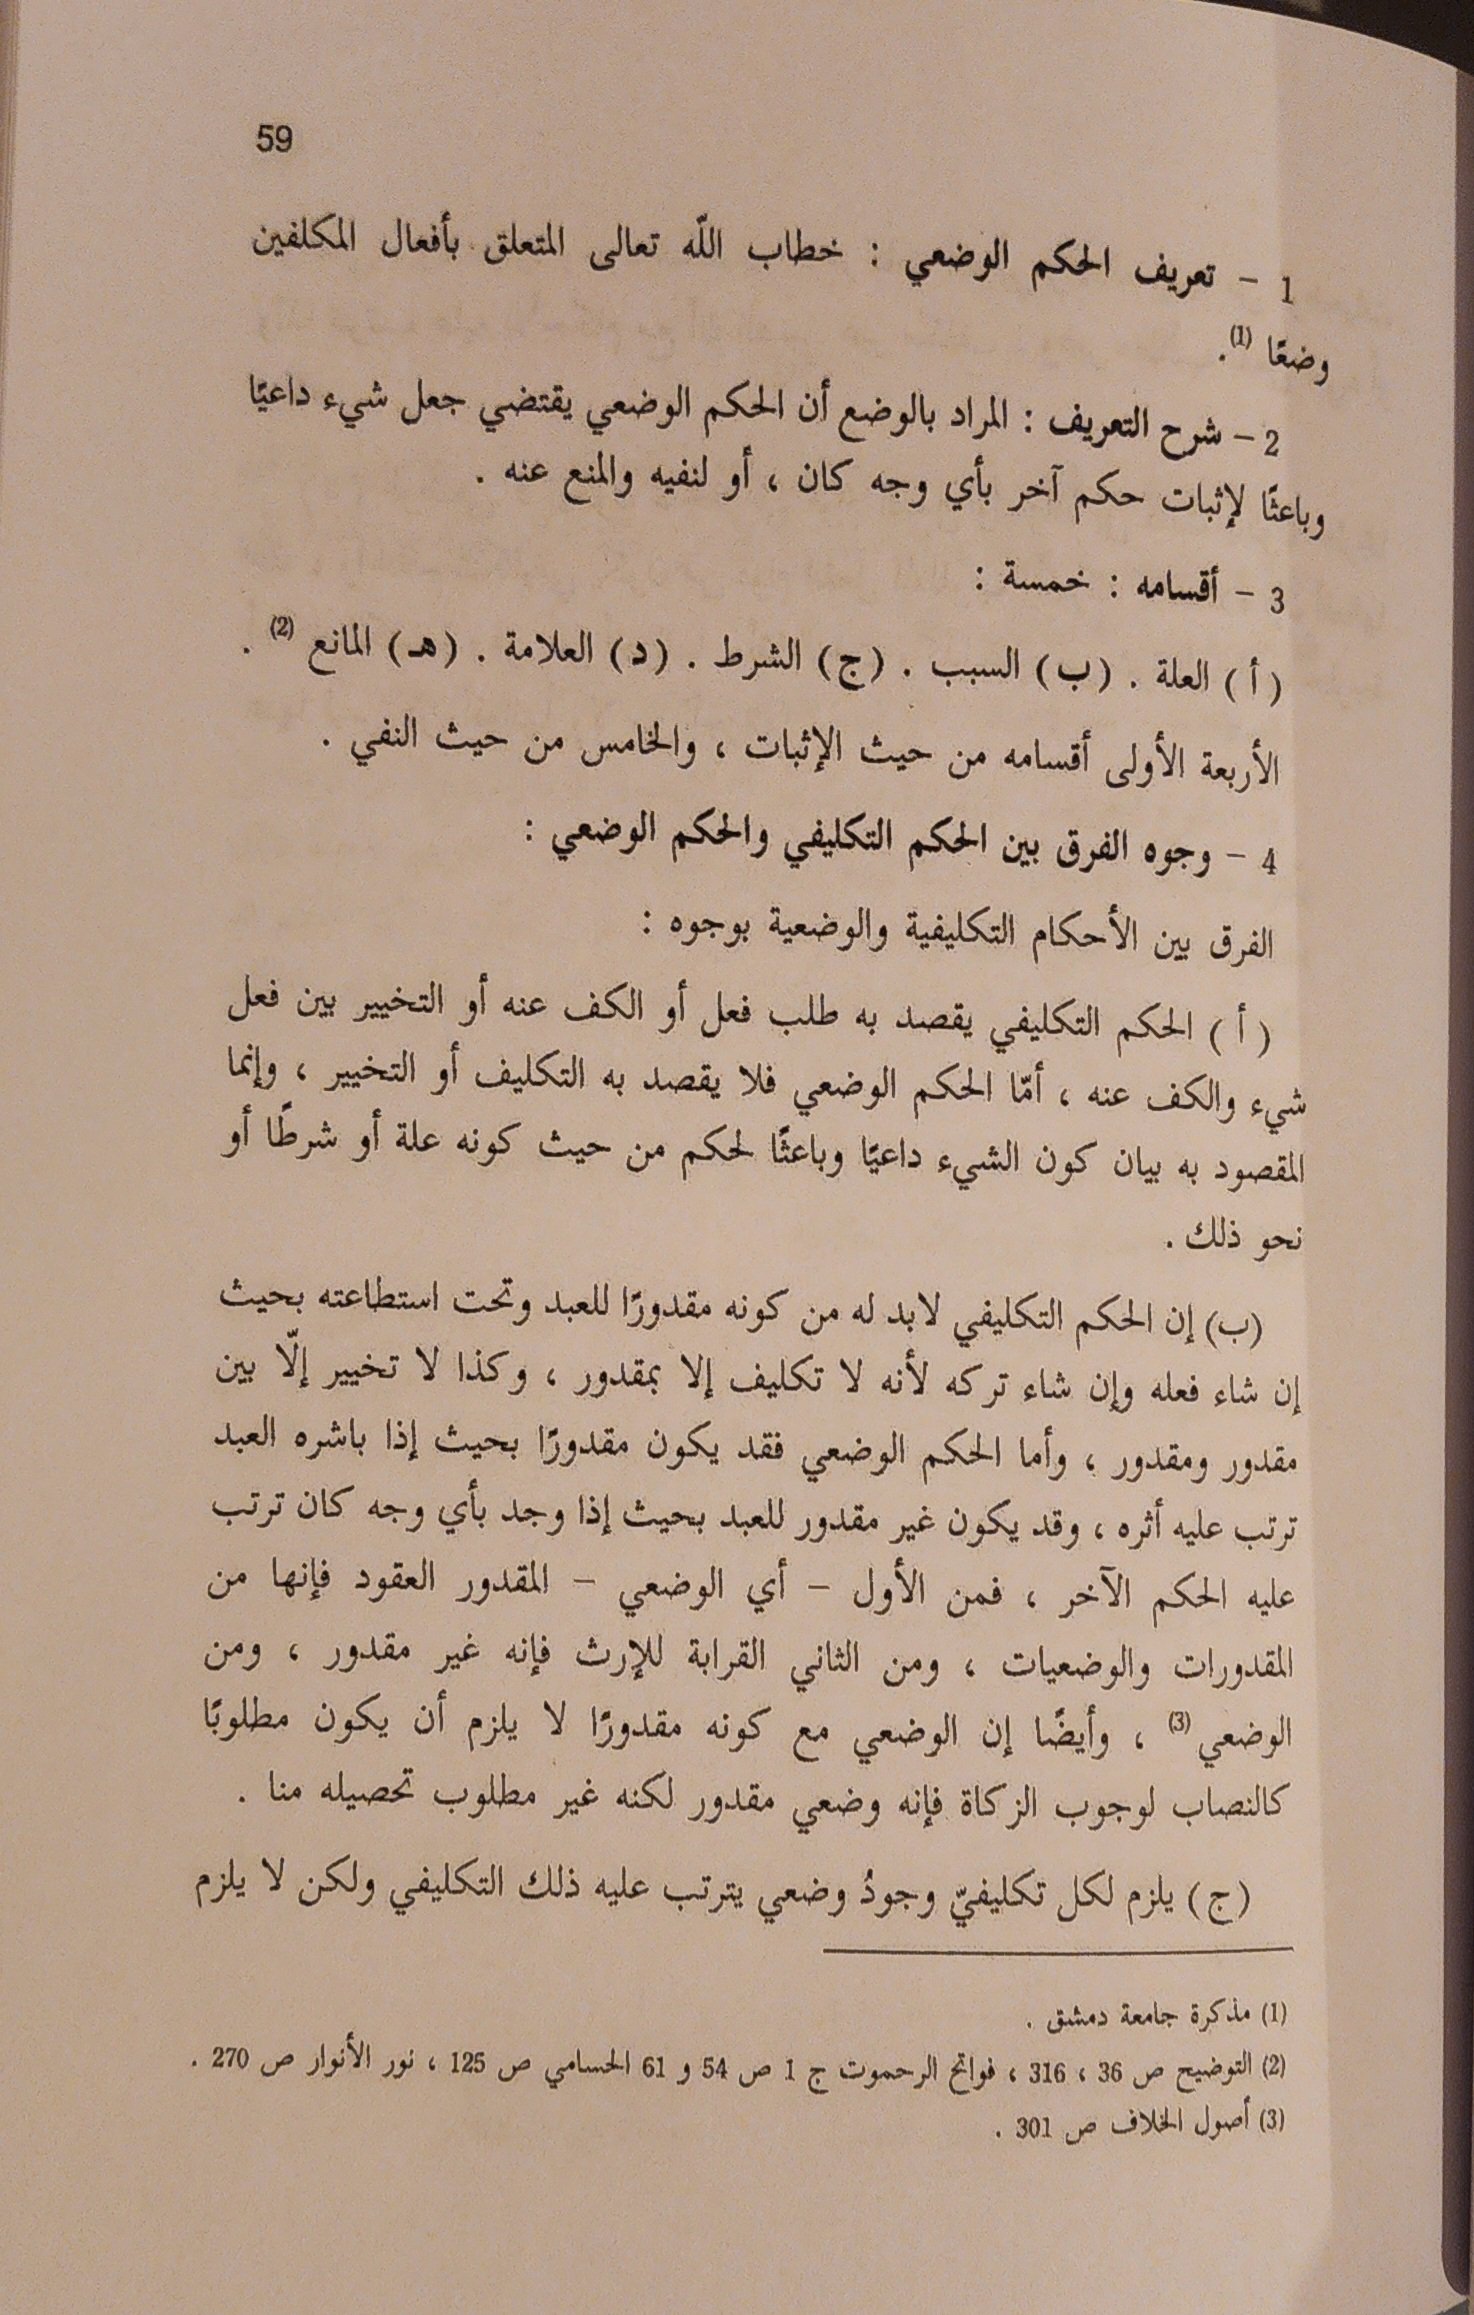 59
1 – تعريف الحكم الوضعي : خطاب اللّه تعالى المتعلق بأفعال المكلفين
وضعًا (1).
2 – شرح التعريف : المراد بالوضع أن الحكم الوضعي يقتضي جعل شيء داعيًا
وباعثًا لإثبات حكم آخر بأي وجه كان ، أو لنفيه والمنع عنه .
3 – أقسامه : خمسة :
( أ ) العلة . (ب) السبب . (ج) الشرط . (د) العلامة . (هـ) المانع (2) .
الأربعة الأولى أقسامه من حيث الإثبات ، والخامس من حيث النفي .
4 – وجوه الفرق بين الحكم التكليفي والحكم الوضعي :
الفرق بين الأحكام التكليفية والوضعية بوجوه :
( أ ) الحكم التكليفي يقصد به طلب فعل أو الكف عنه أو التخيير بين فعل
شيء والكف عنه ، أمّا الحكم الوضعي فلا يقصد به التكليف أو التخيير ، وإنما
المقصود به بيان كون الشيء داعيًا وباعثًا لحكم من حيث كونه علة أو شرطًا أو
نحو ذلك .
(ب) إن الحكم التكليفي لابد له من كونه مقدورًا للعبد وتحت استطاعته بحيث
إن شاء فعله وإن شاء تركه لأنه لا تكليف إلا بمقدور ، وكذا لا تخيير إلّا بين
مقدور ومقدور ، وأما الحكم الوضعي فقد يكون مقدورًا بحيث إذا باشره العبد
ترتب عليه أثره ، وقد يكون غير مقدور للعبد بحيث إذا وجد بأي وجه كان ترتب
عليه الحكم الآخر ، فمن الأول – أي الوضعي – المقدور العقود فإنها من
المقدورات والوضعيات ، ومن الثاني القرابة للإرث فإنه غير مقدور ، ومن
الوضعي (3) ، وأيضًا إن الوضعي مع كونه مقدورًا لا يلزم أن يكون مطلوبًا
كالنصاب لوجوب الزكاة فإنه وضعي مقدور لكنه غير مطلوب تحصيله منا .
(ج) يلزم لكل تكليفيّ وجودُ وضعي يترتب عليه ذلك التكليفي ولكن لا يلزم
(1) مذكرة جامعة دمشق .
(2) التوضيح ص 36 ، 316 ، فواتح الرحموت ج 1 ص 54 و 61 الحسامي ص 125 ، نور الأنوار ص 270 .
(3) أصول الخلاف ص 301 .